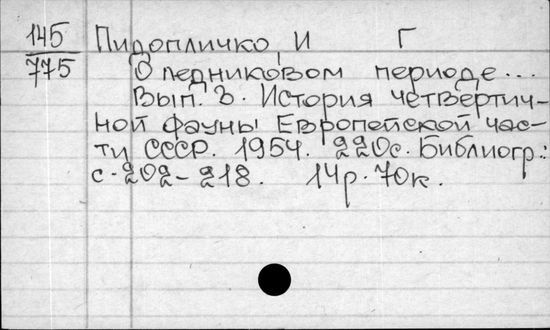 145 Пидопличко, И Г
775 О ледниковом периоде...
Вып. 3. История четвертич-
ной фауны Европейской час-
ти СССР. 1954. 220с. Библиогр.:
с. 202-218. 14р. 70к.